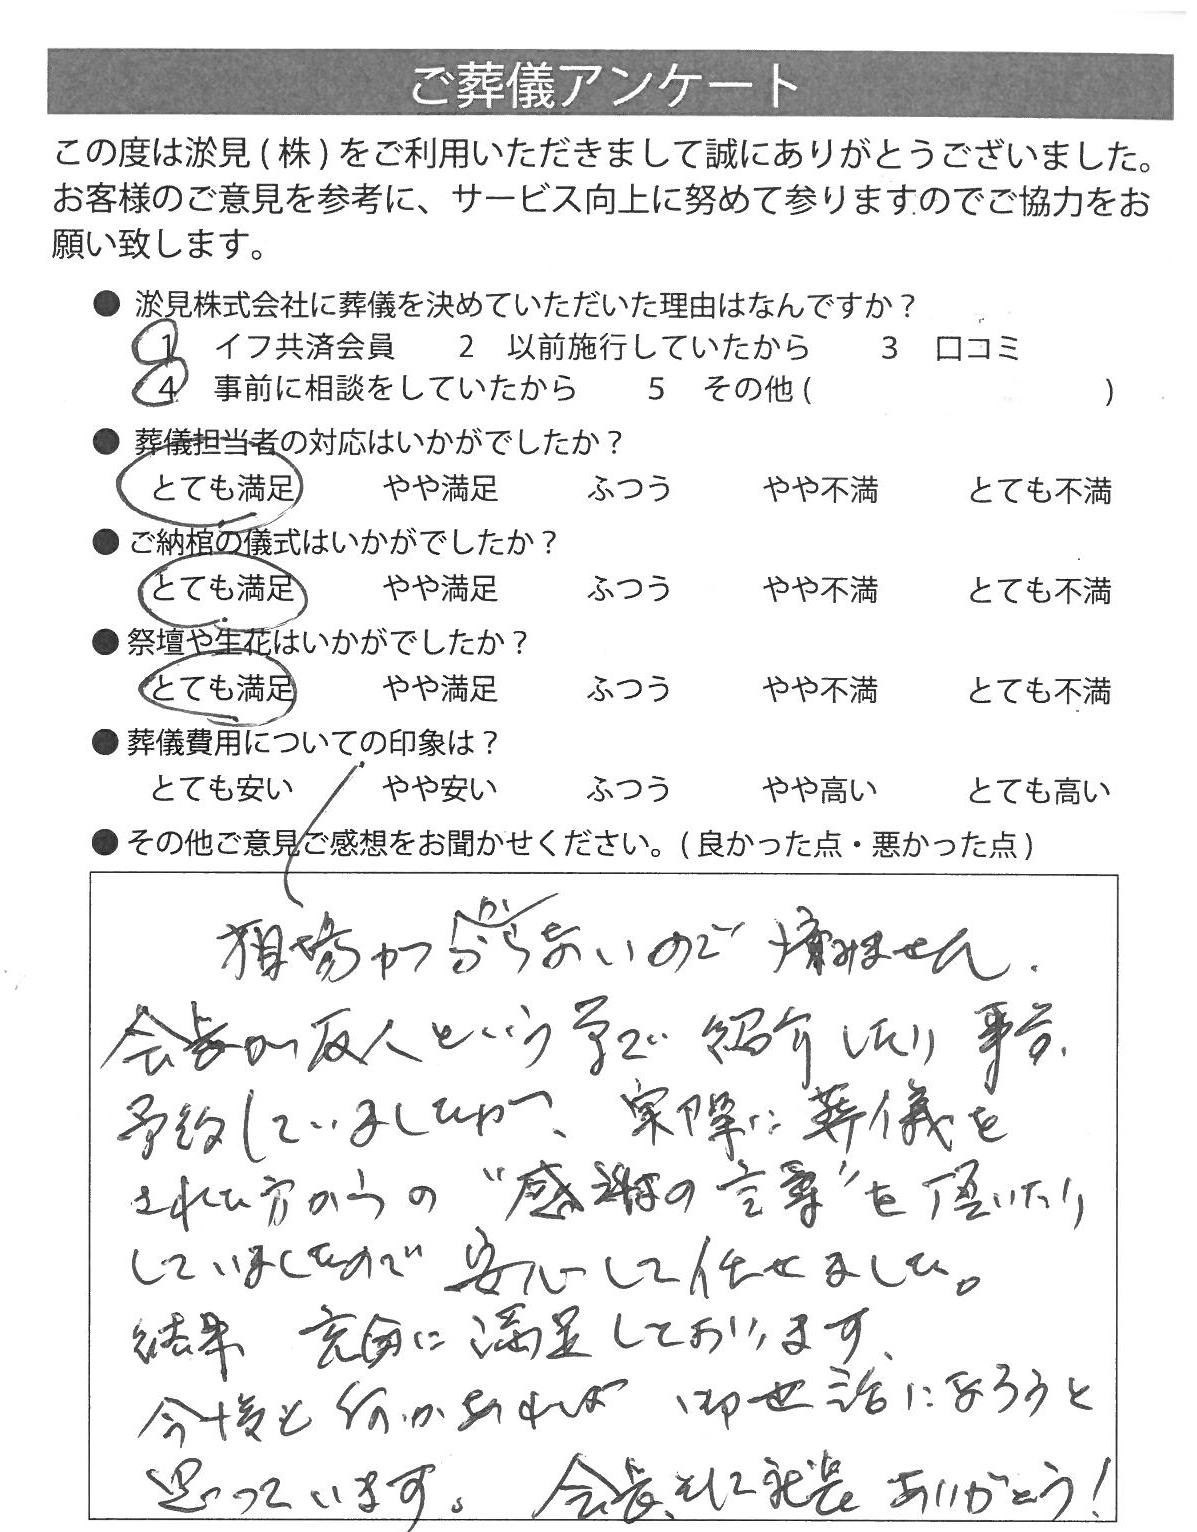 ご葬儀アンケート
この度は淤見(株)をご利用いただきまして誠にありがとうございました。
お客様のご意見を参考に、サービス向上に努めて参りますのでご協力をお
願い致します。
● 淤見株式会社に葬儀を決めていただいた理由はなんですか？
1 イフ共済会員 2 以前施行していたから 3 口コミ
4 事前に相談をしていたから 5 その他( )
● 葬儀担当者の対応はいかがでしたか？
とても満足 やや満足 ふつう やや不満 とても不満
● ご納棺の儀式はいかがでしたか？
とても満足 やや満足 ふつう やや不満 とても不満
● 祭壇や生花はいかがでしたか？
とても満足 やや満足 ふつう やや不満 とても不満
● 葬儀費用についての印象は？
とても安い やや安い ふつう やや高い とても高い
● その他ご意見ご感想をお聞かせください。(良かった点・悪かった点)
相場が分からないので済みません.
会長が友人という事で紹介したり事前
予約していましたが、実際に葬儀を
された方からの"感謝の言葉"を頂いたり
していましたので安心して任せました。
結果 充分に満足しております。
今後も何かあれば 御世話になろうと
思っています。 会長、そして社長 ありがとう!